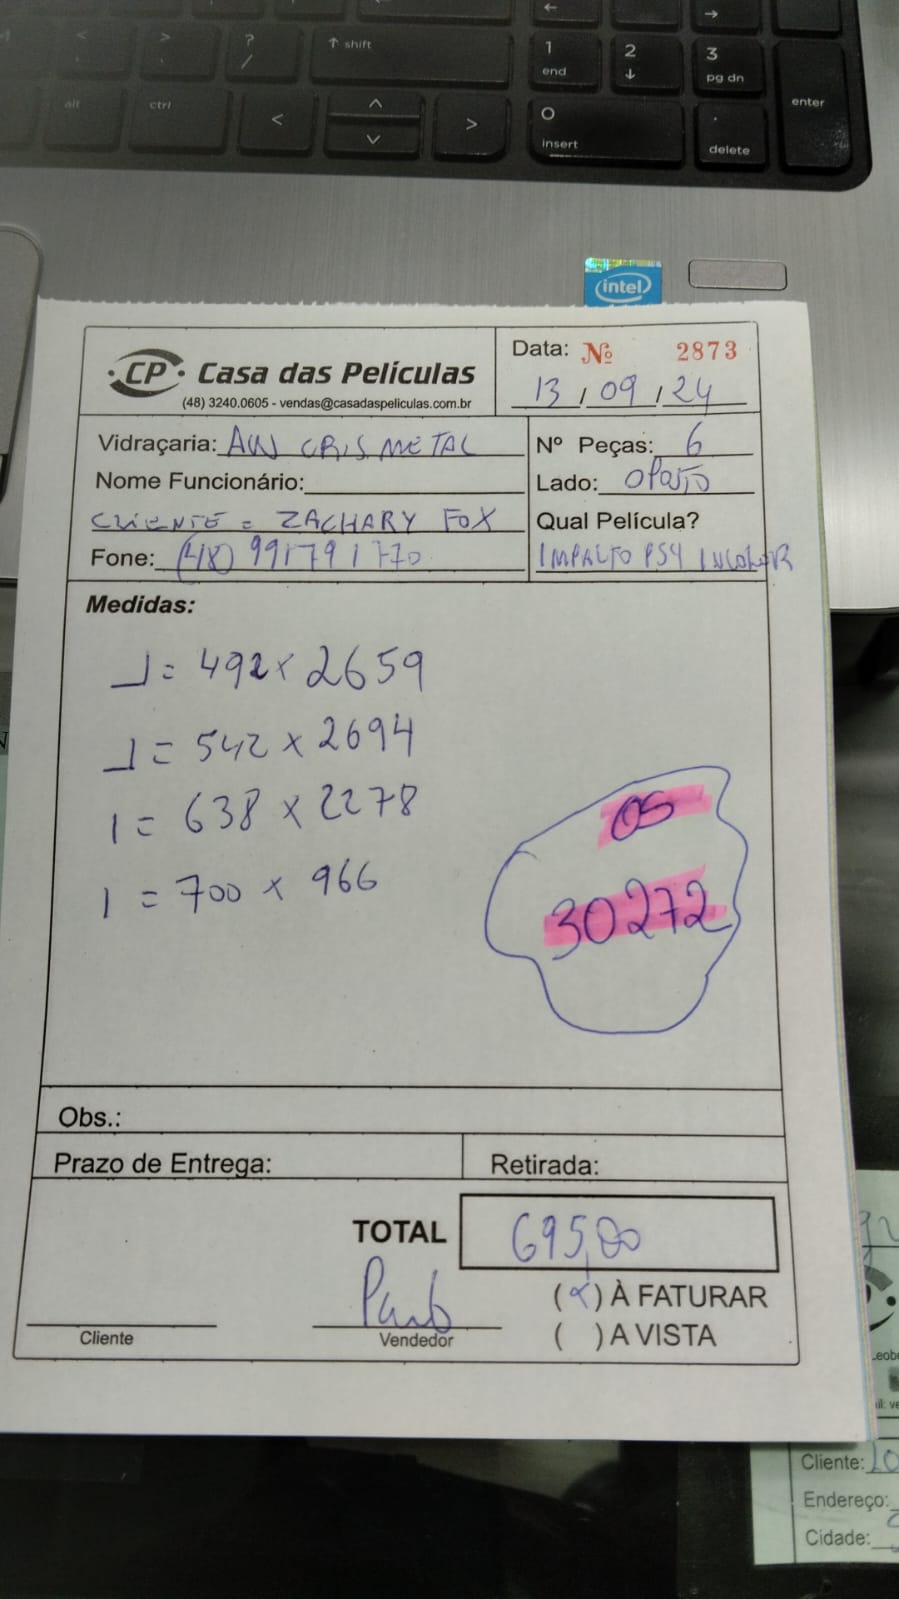 shift
1
end
2
3
pg dn
alt
ctrl
0
insert
delete
enter
intel
CP Casa das Películas
(48) 3240.0605 - vendas@casadaspeliculas.com.br
Data: Nº 2873
13 / 09 / 24
Vidraçaria: AW CRIS METAL
Nº Peças: 6
Nome Funcionário:
Lado: OPOSTO
CLIENTE = ZACHARY FOX
Qual Película?
Fone: (48) 991791770
IMPACTO PS4 INCOLOR
Medidas:
= 492 x 2659
= 542 x 2694
1 = 638 x 2278
1 = 700 x 966
OS
30272
Obs.:
Prazo de Entrega:
Retirada:
TOTAL 695,00
(x) À FATURAR
( ) A VISTA
Cliente
Vendedor
Cliente:
Endereço:
Cidade: